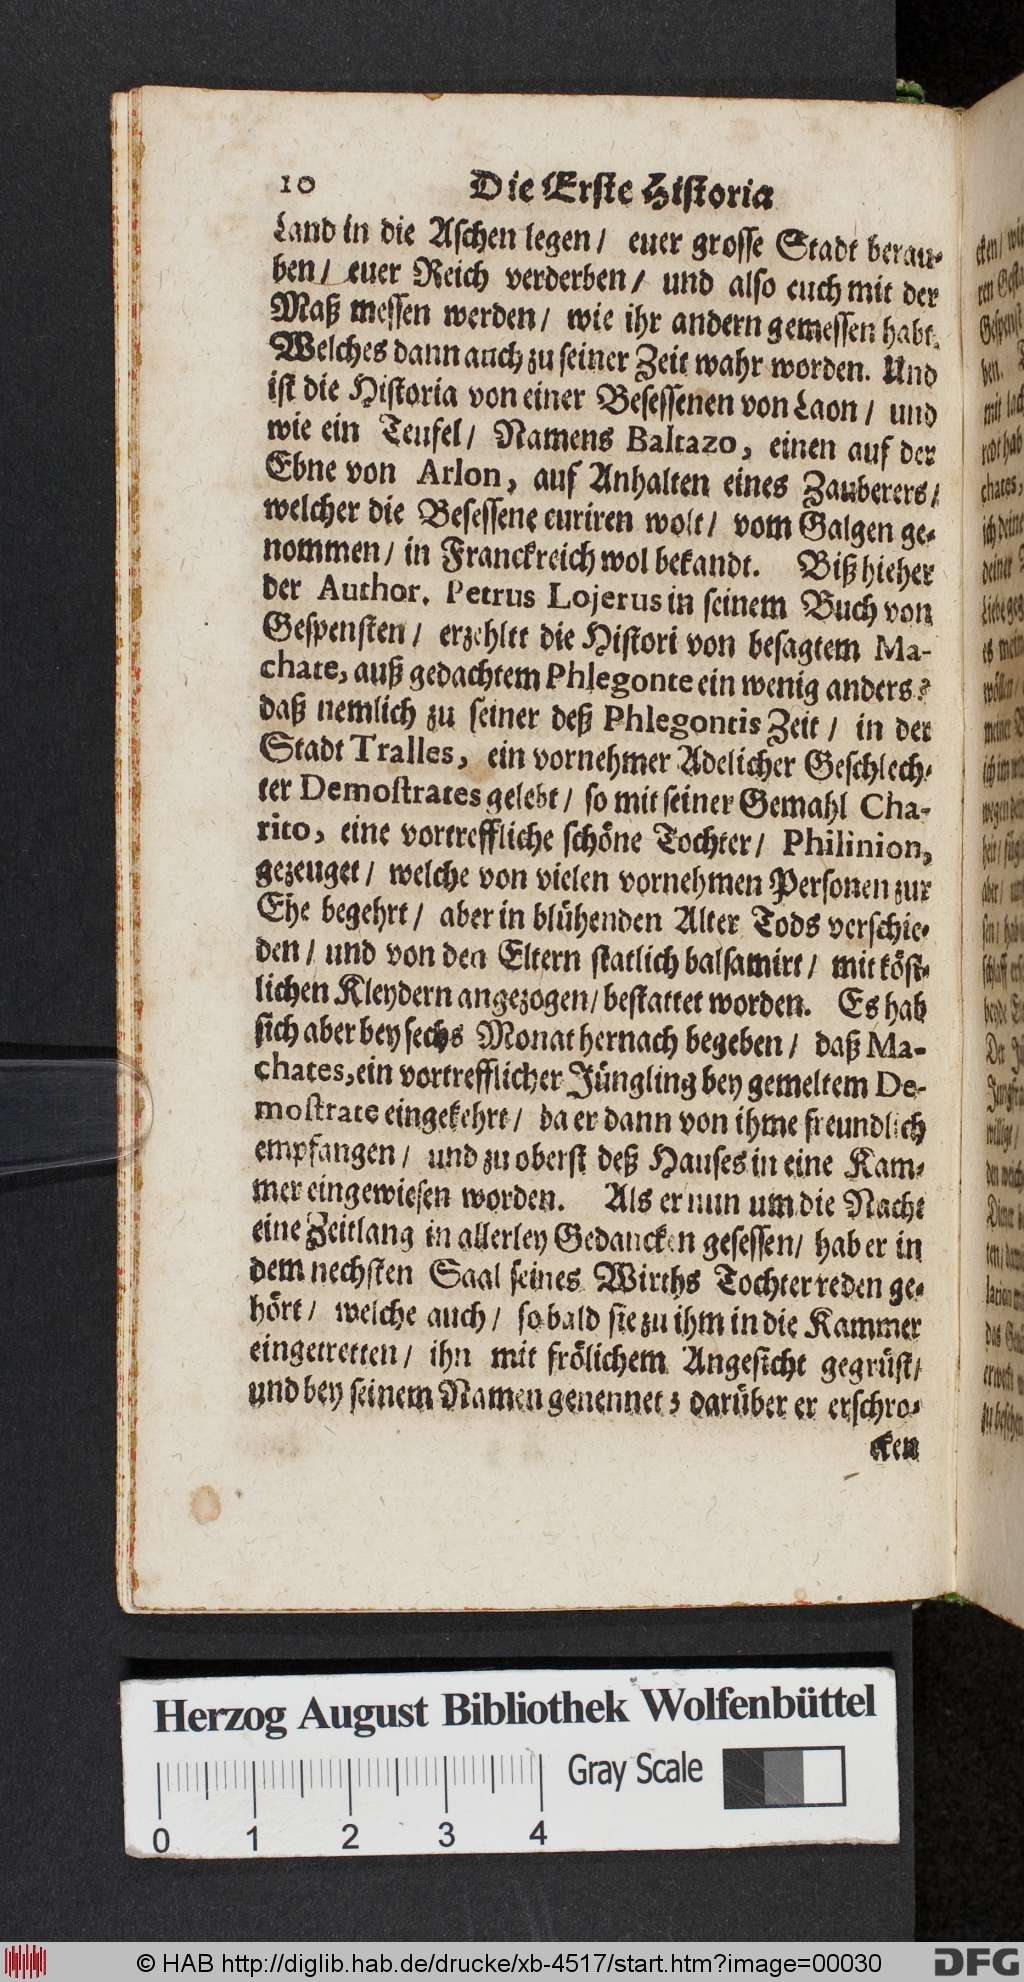 10 Die Erste Historia
Land in die Aschen legen / euer grosse Stadt berau-
ben / euer Reich verderben / und also euch mit der
Maß messen werden / wie ihr andern gemessen habt.
Welches dann auch zu seiner Zeit wahr worden. Und
ist die Historia von einer Besessenen von Laon / und
wie ein Teufel / Namens Baltazo, einen auf der
Ebne von Arlon, auf Anhalten eines Zauberers /
welcher die Besessene curiren wolt / vom Galgen ge-
nommen / in Franckreich wol bekandt. Biß hieher
der Author. Petrus Lojerus in seinem Buch von
Gespensten / erzehlet die Histori von besagtem Ma-
chate, auß gedachtem Phlegonte ein wenig anders:
daß nemlich zu seiner deß Phlegontis Zeit / in der
Stadt Tralles, ein vornehmer Adelicher Geschlech-
ter Demostrates gelebt / so mit seiner Gemahl Cha-
rito, eine vortreffliche schöne Tochter / Philinion,
gezeuget / welche von vielen vornehmen Personen zur
Ehe begehrt / aber in blühenden Alter Tods verschie-
den / und von den Eltern statlich balsamirt / mit köst-
lichen Kleydern angezogen / bestattet worden. Es hab
sich aber bey sechs Monat hernach begeben / daß Ma-
chates, ein vortrefflicher Jüngling bey gemeltem De-
mostrate eingekehrt / da er dann von ihme freundlich
empfangen / und zu oberst deß Hauses in eine Kam-
mer eingewiesen worden. Als er nun um die Nacht
eine Zeitlang in allerley Gedancken gesessen / hab er in
dem nechsten Saal seines Wirths Tochter reden ge-
hört / welche auch / so bald sie zu ihm in die Kammer
eingetretten / ihn mit frölichem Angesicht gegrüst /
und bey seinem Namen genennet; darüber er erschro-
cken
Herzog August Bibliothek Wolfenbüttel
Gray Scale
0 1 2 3 4
© HAB http://diglib.hab.de/drucke/xb-4517/start.htm?image=00030
DFG